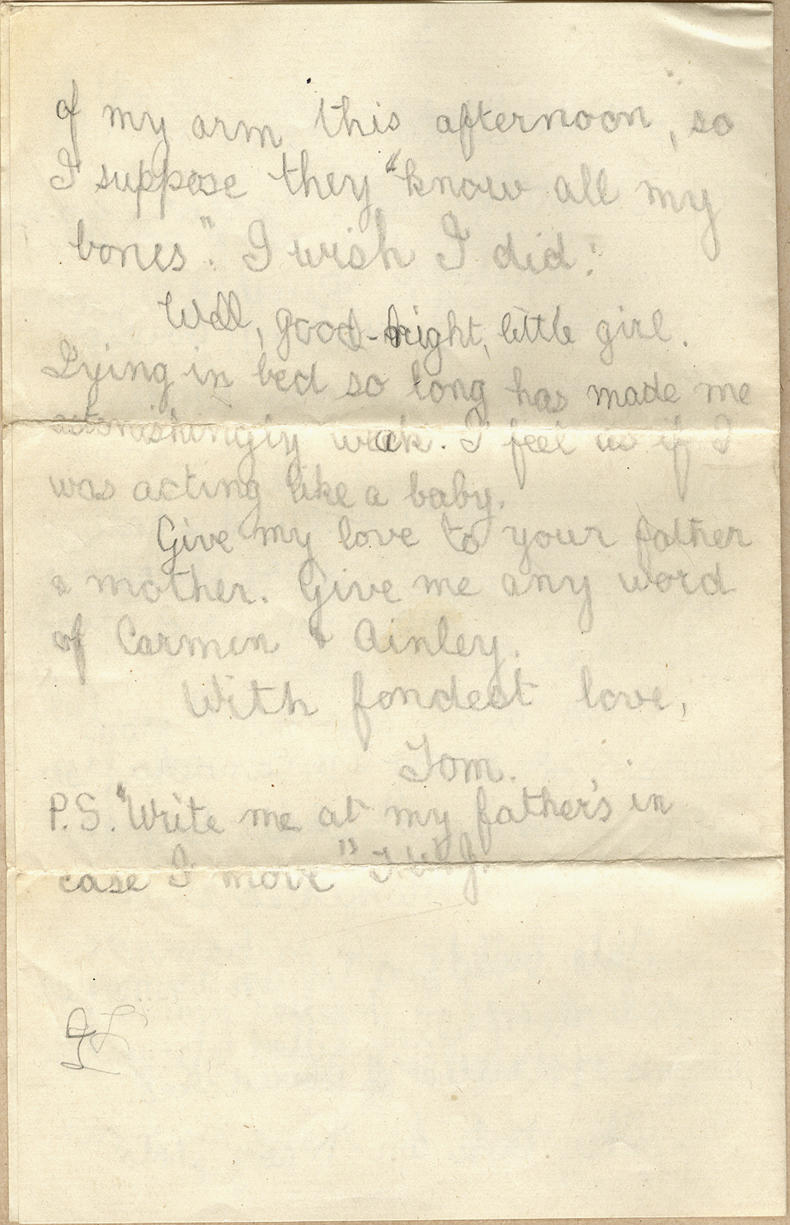 of my arm this afternoon, so
I suppose they "know all my
bones". I wish I did.
Well, good-night, little girl.
Lying in bed so long has made me
astonishingly weak. I feel as if I
was acting like a baby.
Give my love to your father
& mother. Give me any word
of Carmen & Ainley.
With fondest love,
Tom.
P.S. "Write me at my father's in
case I move"